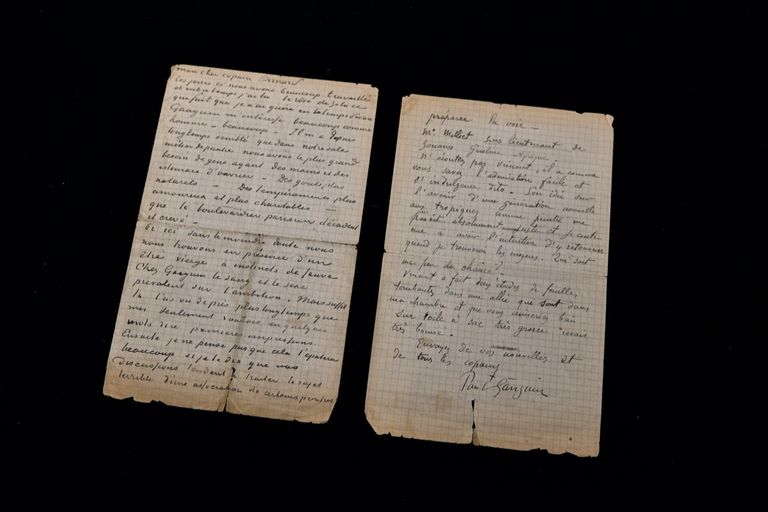 mon cher copain Bernard
Ces jours ci nous avons beaucoup travaillé
et entretemps j'ai lu le rêve de Zola ce
qui fait que je n'ai guère eu le temps d'écrire
Gauguin m'intéresse beaucoup comme
homme - beaucoup - Il m'a depuis
longtemps semblé que dans notre sale
métier de peintre nous avons le plus grand
besoin de gens ayant des mains et des
estomacs d'ouvrier - Des goûts plus
naturels - Des tempéraments plus
amoureux et plus charitables -
que le boulevardier parisien décadent
et crevé -
Or ici sans le moindre doute nous
nous trouvons en présence d'un
être vierge à instincts de sauvage
Chez Gauguin le sang et le sexe
prévalent sur l'ambition. Mais suffit
tu l'as vu de près plus longtemps que
moi seulement voulais en quelques
mots dire premières impressions
Ensuite je ne pense pas que cela t'épatera
beaucoup si je te dis que nos
discussions tendent à traiter le sujet
terrible d'une association de certains peintres
préparer la voie -
Mr Milliet sous lieutenant de
zouaves Guelma Afrique
N'écoutez pas Vincent, il a comme
vous savez l'admiration facile et
et indulgence dito - Son idée sur
l'avenir d'une génération nouvelle
aux tropiques comme peintre me
paraît absolument juste et je conti
nue à avoir l'intention d'y retourner
quand je trouverai les moyens. Qui sait
un peu de chance ?
Vincent a fait deux études de feuilles
tombantes dans une allée qui sont dans
ma chambre et que vous aimeriez bien
sur toile à sac très grosse mais
très bonne.
Envoyez de vos nouvelles et
de tous les copains
Paul Gauguin